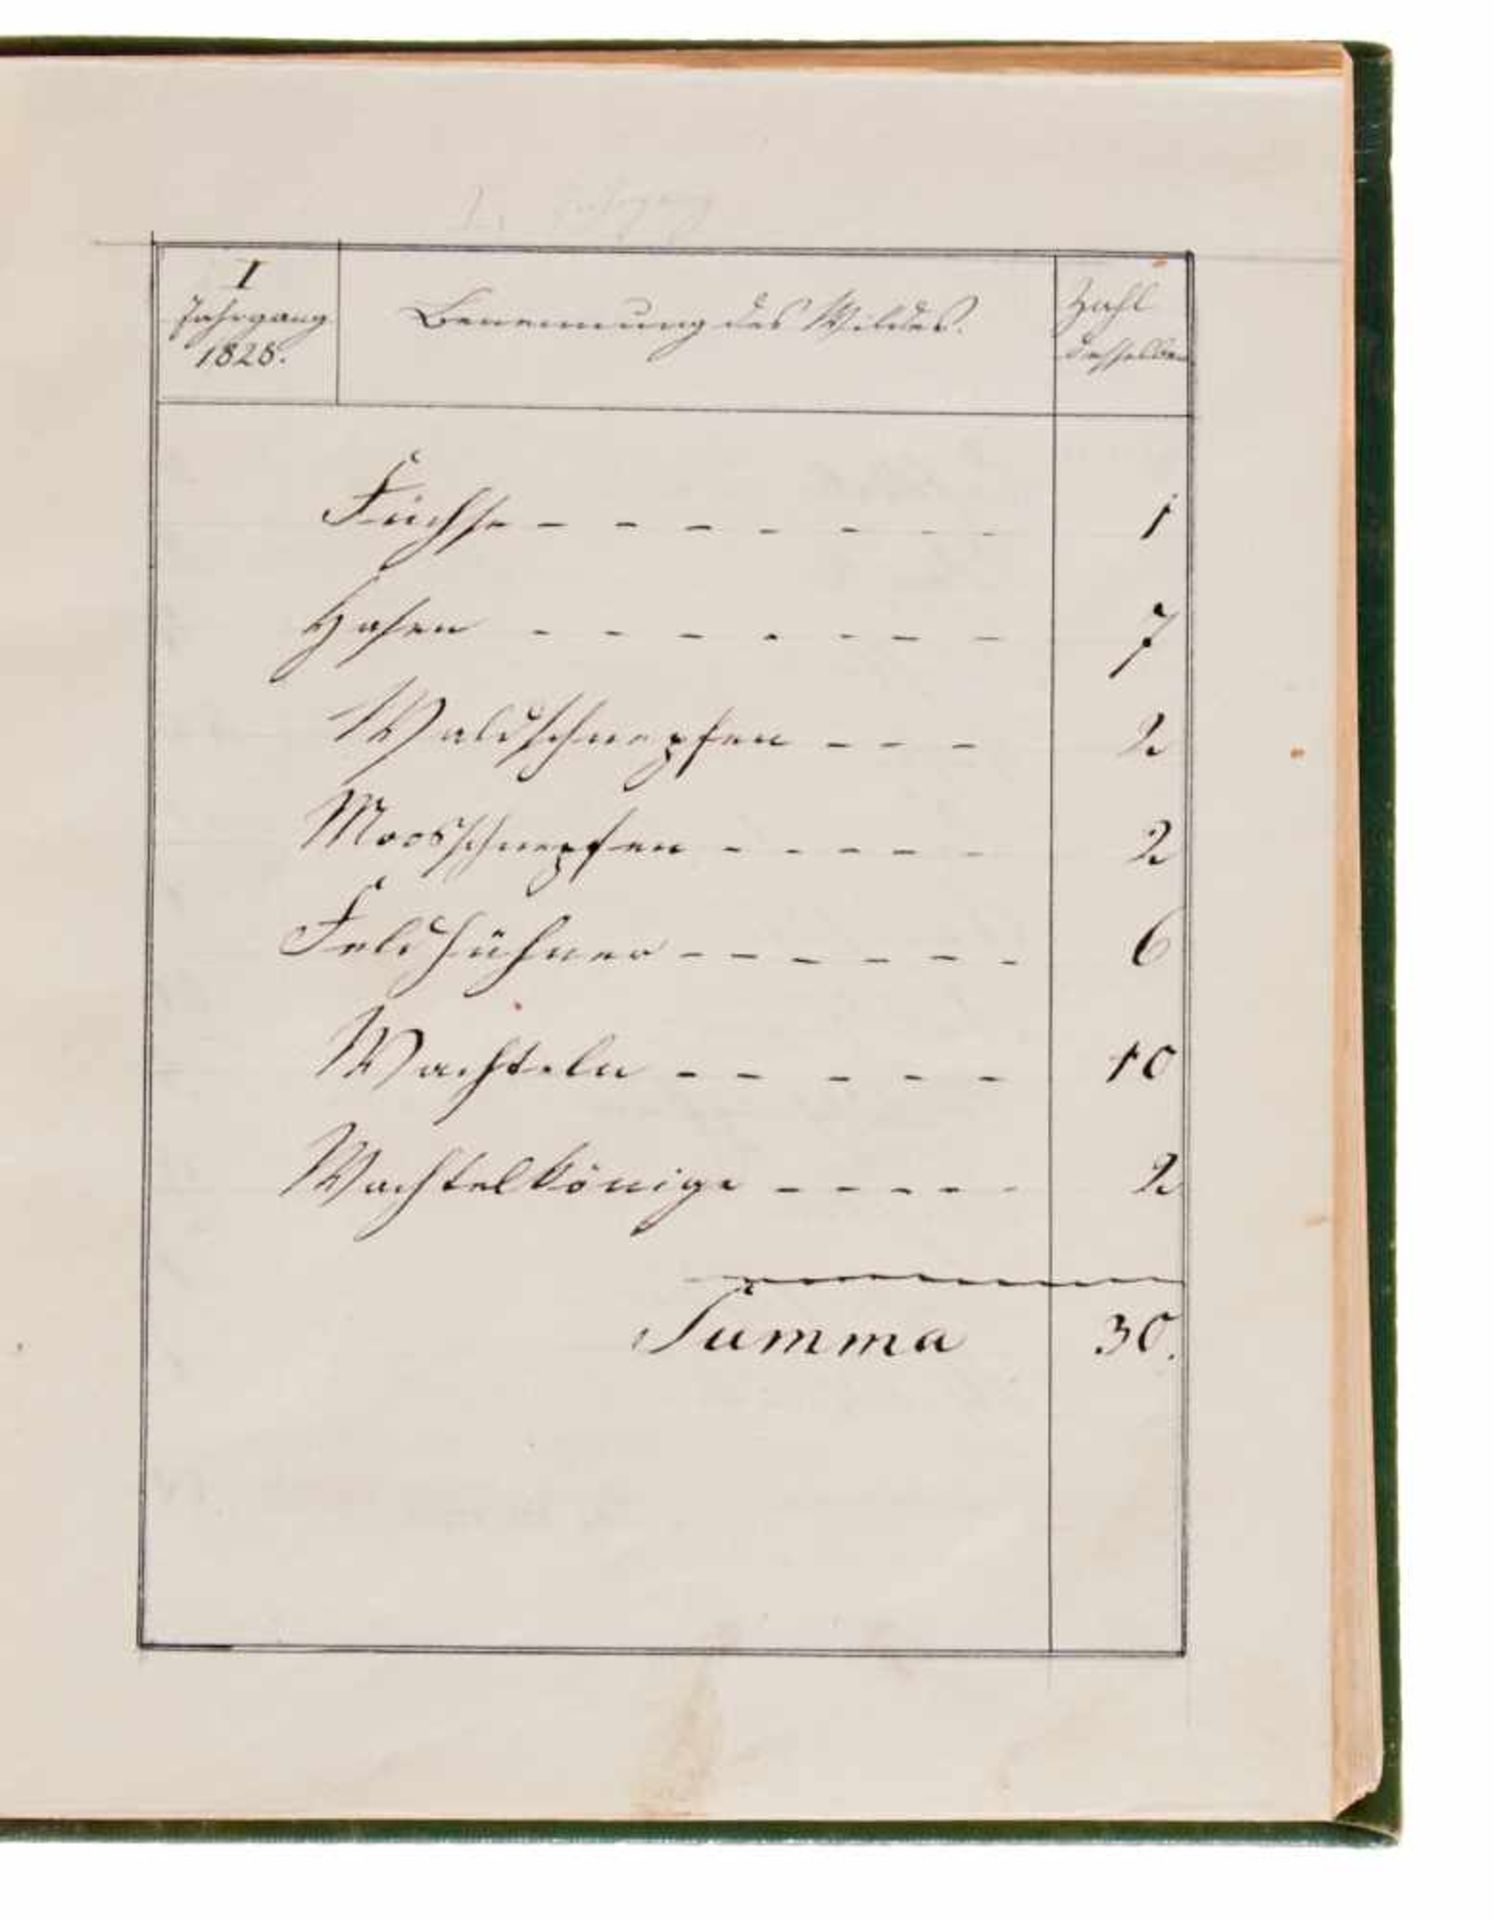 I Jahrgang
I
Jahrgang
1828.
Benennung des Wildes.
Zahl
desselben
Füchse - - - - - - - 1
Hasen - - - - - - - 7
Waldschnepfen - - - 2
Moosschnepfen - - - - - 2
Feldhühner - - - - - - 6
Wachteln - - - - - 10
Wachtelkönige - - - - - 2
Summa 30.